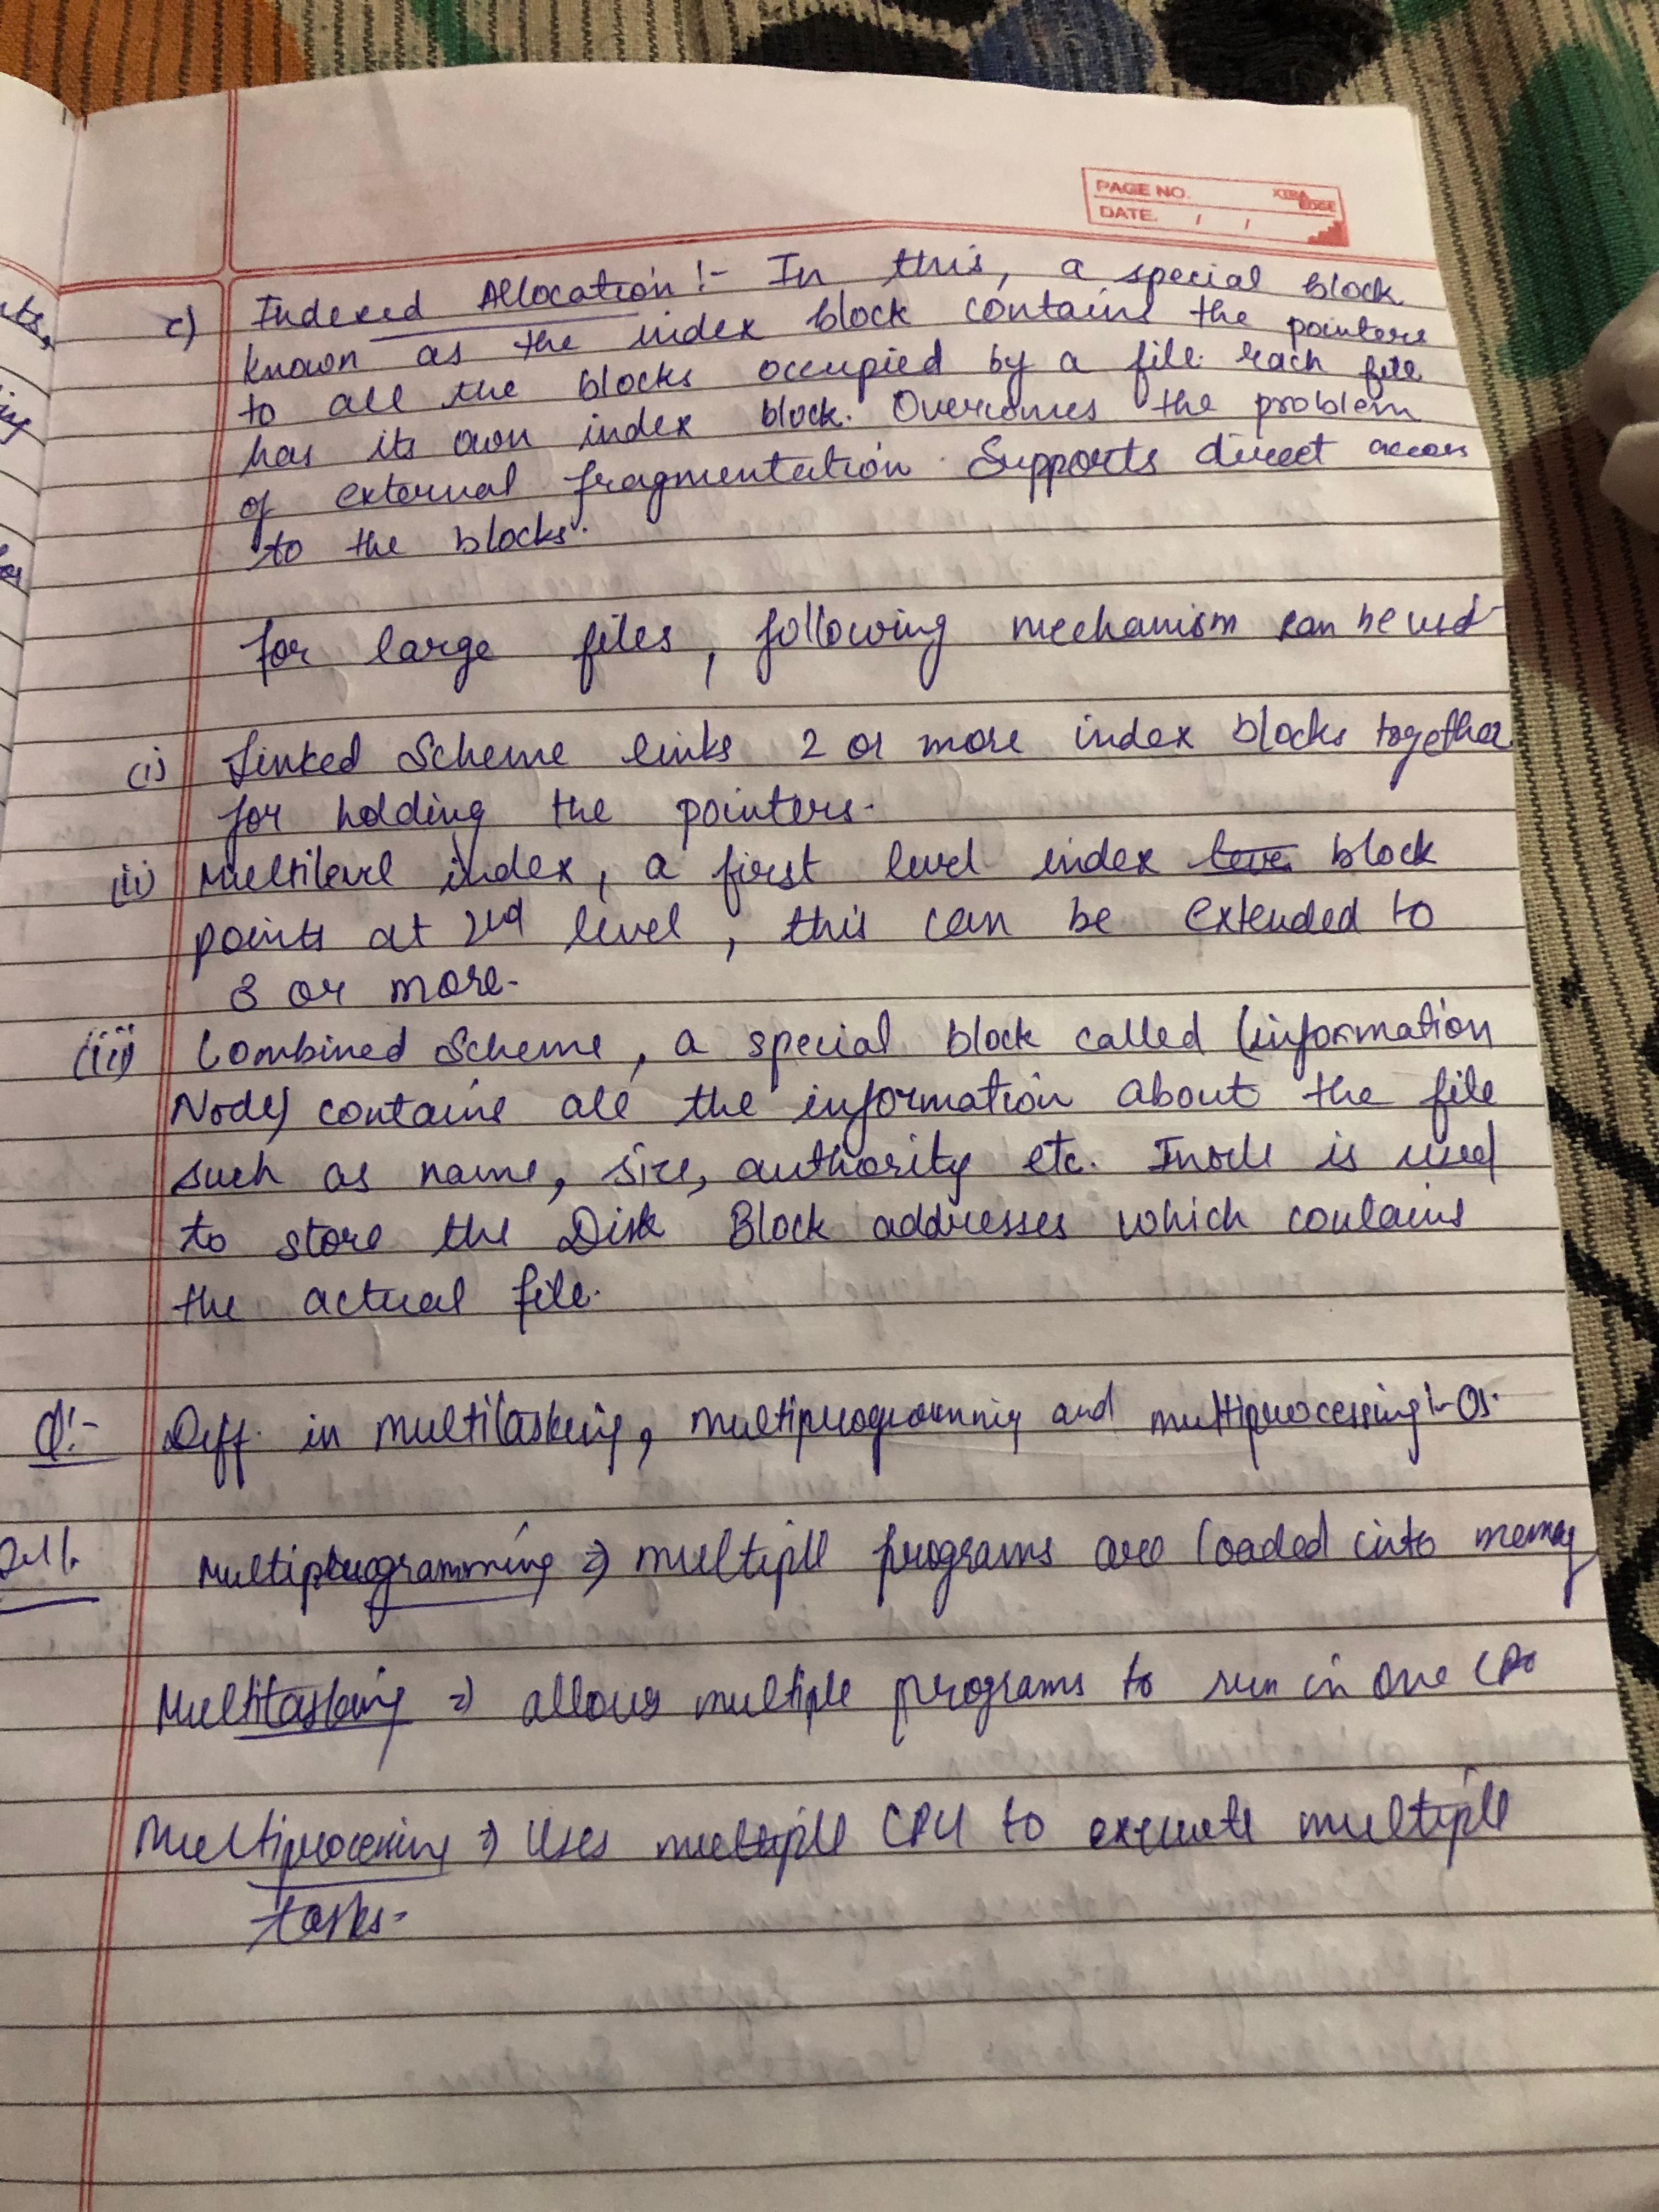 PAGE NO.
XTRA EDGE
DATE. / /
c) Indexed Allocation :- In this, a special block
known as the index block contains the pointers
to all the blocks occupied by a file. each file
has its own index block. Overcomes the problem
of external fragmentation. Supports direct access
to the blocks.
for large files, following mechanism can be used
(i) Linked Scheme links 2 or more index blocks together
for holding the pointers.
(ii) Multilevel index, a first level index block
points at 2nd level, this can be extended to
3 or more.
(iii) Combined Scheme, a special block called (information
Node) contains all the information about the file
such as name, size, authority etc. Inode is used
to store the Disk Block addresses which contains
the actual file.
Q:- Diff. in multitasking, multiprogramming and multiprocessing :- OS.
Multiprogramming => multiple programs are loaded into memory
Multitasking => allows multiple programs to run in one CPU
Multiprocessing => Uses multiple CPU to execute multiple
tasks.